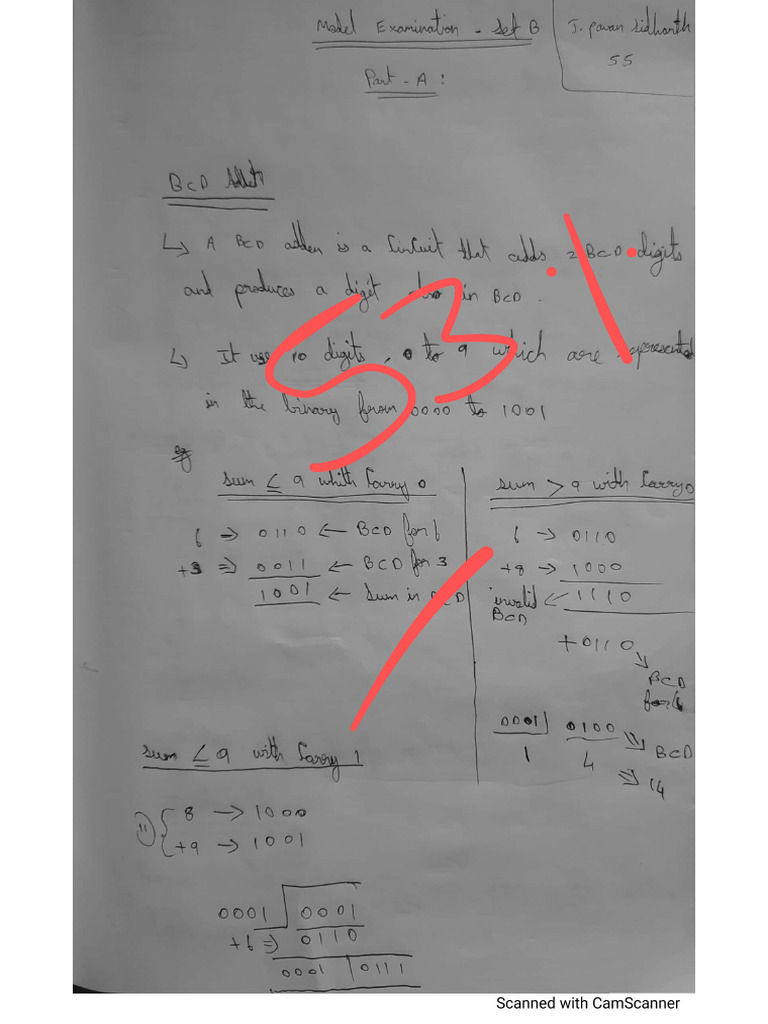 Model Examination - Set B
J. Pavan Sidharth
55
Part - A :
BCD Adder
↳ A BCD adder is a Circuit that adds 2 BCD digits
and produces a digit also in BCD .
↳ It use 10 digits , 0 to 9 which are represented
in the binary from 0000 to 1001
eg
sum ≤ 9 whith Carry 0
6 → 0110 ← BCD for 6
+3 ⇒ 0011 ← BCD for 3
1001 ← Sum in BCD
sum > 9 with Carry 0
6 → 0110
+8 → 1000
invalid ← 1110
BCD
+0110
BCD
for 6
0001 0100
BCD
1 4
⇒ 14
sum ≤ 9 with Carry 1
11) { 8 → 1000
+9 → 1001
0001 0001
+6 ⇒ 0110
0001 | 0111
53
Scanned with CamScanner